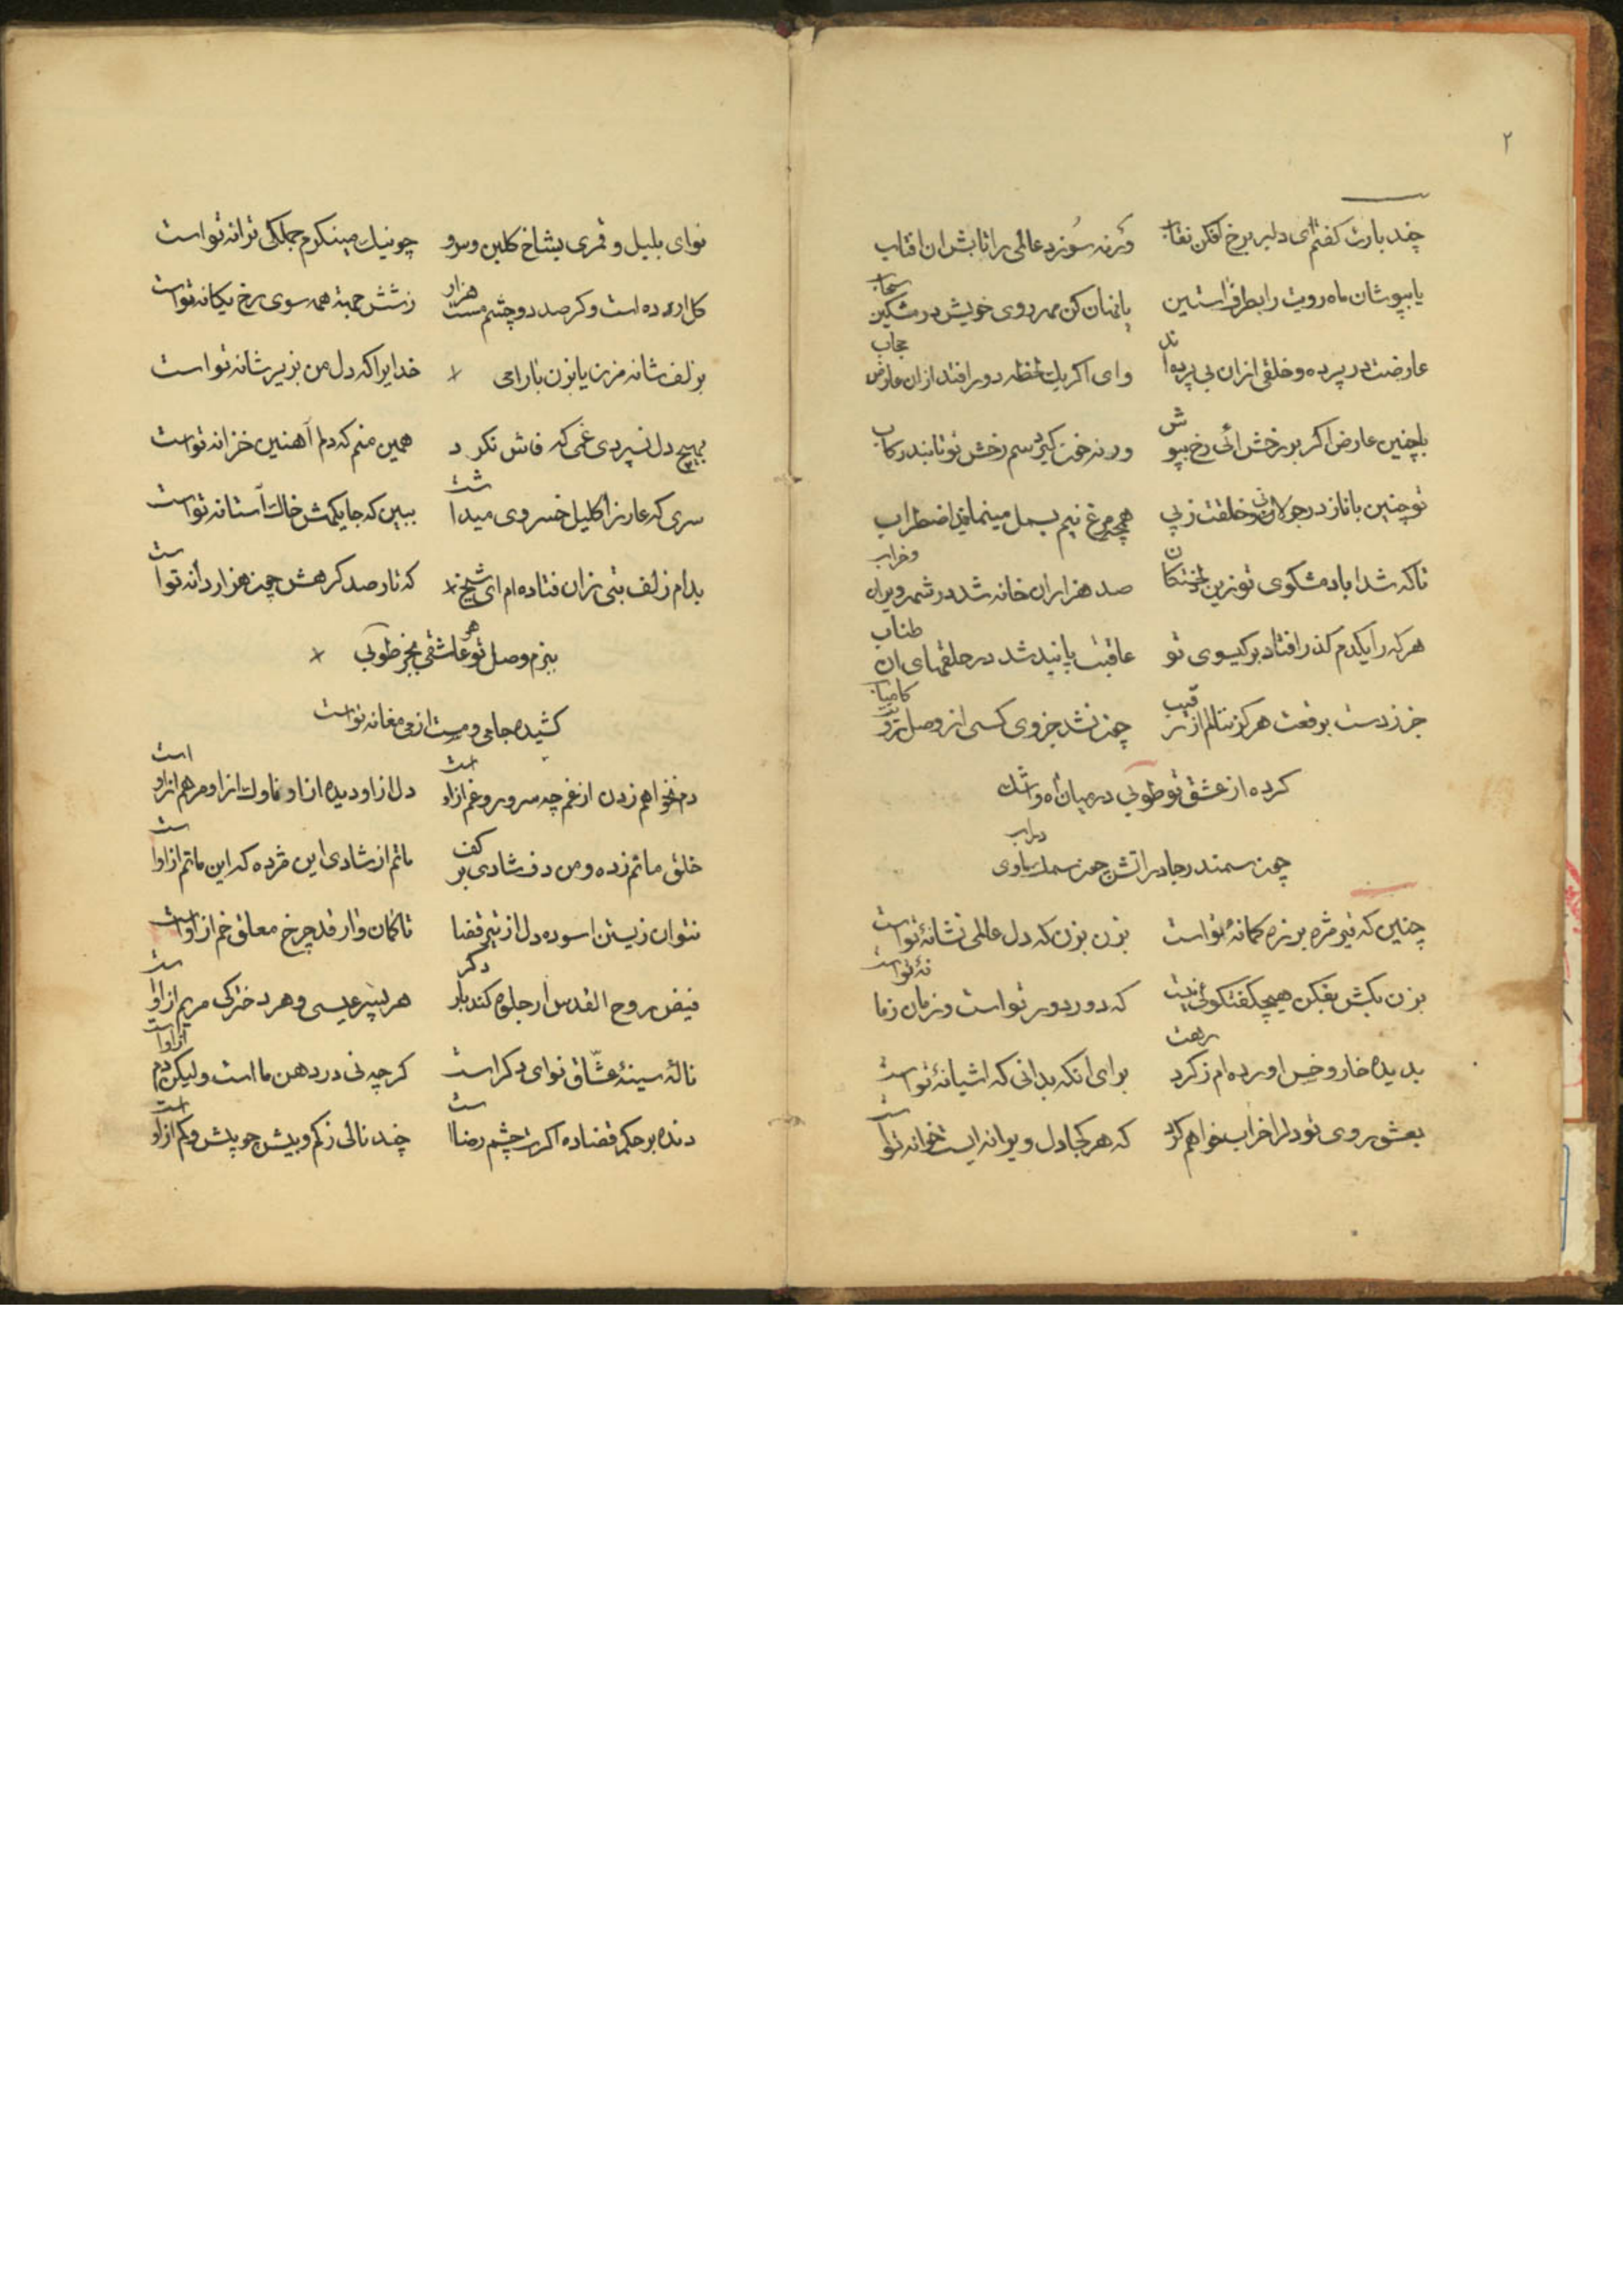 ۲
چند بارت کفتم ای دلبر برخ افکن نقاب ورنه سوزد عالمی را تابش ان افتاب
یا بپوشان ماه رویت را بطرف استین یا نهان کن مهر روی خویش در مشکین سحاب
عارضت در پرده و خلقی ازان بی پرده اند وای اکر یک لحظه دور افتد ازان عارض حجاب
باچنین عارض اکر بر رخش ائی رخ بپوش ورنه خون کیرد سم رخش تو تا بند رکاب
تو چنین با ناز در جولان و خلقت ز پی همچو مرغ نیم بسمل مینماید اضطراب
تا که شد اباد مشکوی تو زین صد هزاران خانه شد در شهر ویران و خراب
هر که را یکدم کذر افتاد بر کیسوی تو عاقبت پابند شد در حلقهای ان طناب
جز ز دست برقعت هرکز ننالم از رقیب چون نشد جز وی کسی از وصل تو کامیاب
کرده از عشق تو طوبی در میان اه و اشک
چون سمندر جا در اتش چون سمک ماوی در اب
چنین که تیر مژه بر زه کمانهٔ تو است بزن بزن که دل عالمی نشانهٔ تو است
بزن بکش بفکن هیچ کفتکوئی نیست که دور دور تو است و زمان زمانهٔ تو است
بدیده خار و خس اورده ام ز کرد رهت برای انکه بدانی که اشیانهٔ تو است
بعشق روی تو دل را خراب خواهم کرد که هر کجا دل ویرانه ایست خانه تو است
نوای بلبل و قمری بشاخ کلبن و سرو چو نیک مینکرم جملکی ترانه تو است
کل ار ده است و کر صد دو چشم مست هزار ز شش جهته همه سوی رخ یکانه تو است
بزلف شانه مزن یا بزن بارامی خدایرا که دل من بزیر شانه تو است
بهیچ دل نسپردی غمی که فاش نکرد همین منم که دلم آهنین خزانه تو است
سری که عار ز اکلیل خسروی میداشت ببین که جایکهش خاک آستانه تو است
بدام زلف بتی زان فتاده ام ای شیخ که تار صد کرهش چون هزار دانه تو است
ببزم وصل تو هر عاشقی بجز طوبی
کشیده جامی و مست از می مغانه تو است
دم نخواهم زدن از غم چه سرور و غم ازاو است دل ازاو دیده ازاو ناوک ازاو مرهم ازاو است
خلق ماتم زده و من دف شادی بر کف ماتم از شادی این مژده که این ماتم ازاو است
نتوان زیستن اسوده دل از تیر قضا تا کمان وار قد چرخ معلق خم ازاو است
فیض روح القدس ار جلوه کند بار دکر هر پسر عیسی و هر دخترکی مریم ازاو است
نالهٔ سینهٔ عشّاق نوای دکر است کرچه نی در دهن ما است ولیکن دم ازاو است
دنده بر حکم قضا ده اکرت چشم رضا است چند نالی ز کم و بیش چو بیش و کم ازاو است